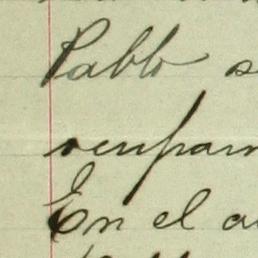 Pablo s
ocupam
En el a